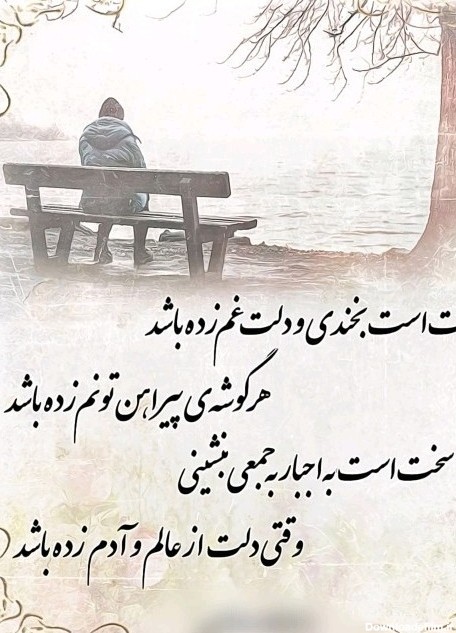 ت است بخندی و دلت غم زده باشد
هر گوشه‌ی پیراهن تو نم زده باشد
سخت است به اجبار به جمعی بنشینی
وقتی دلت از عالم و آدم زده باشد